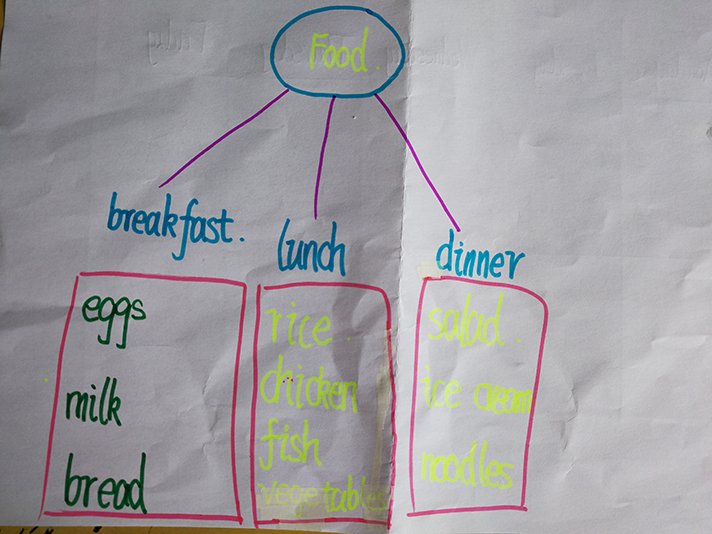 Food.
breakfast.
lunch
dinner
eggs
milk
bread
rice
chicken
fish
vegetables
salad.
ice cream
noodles